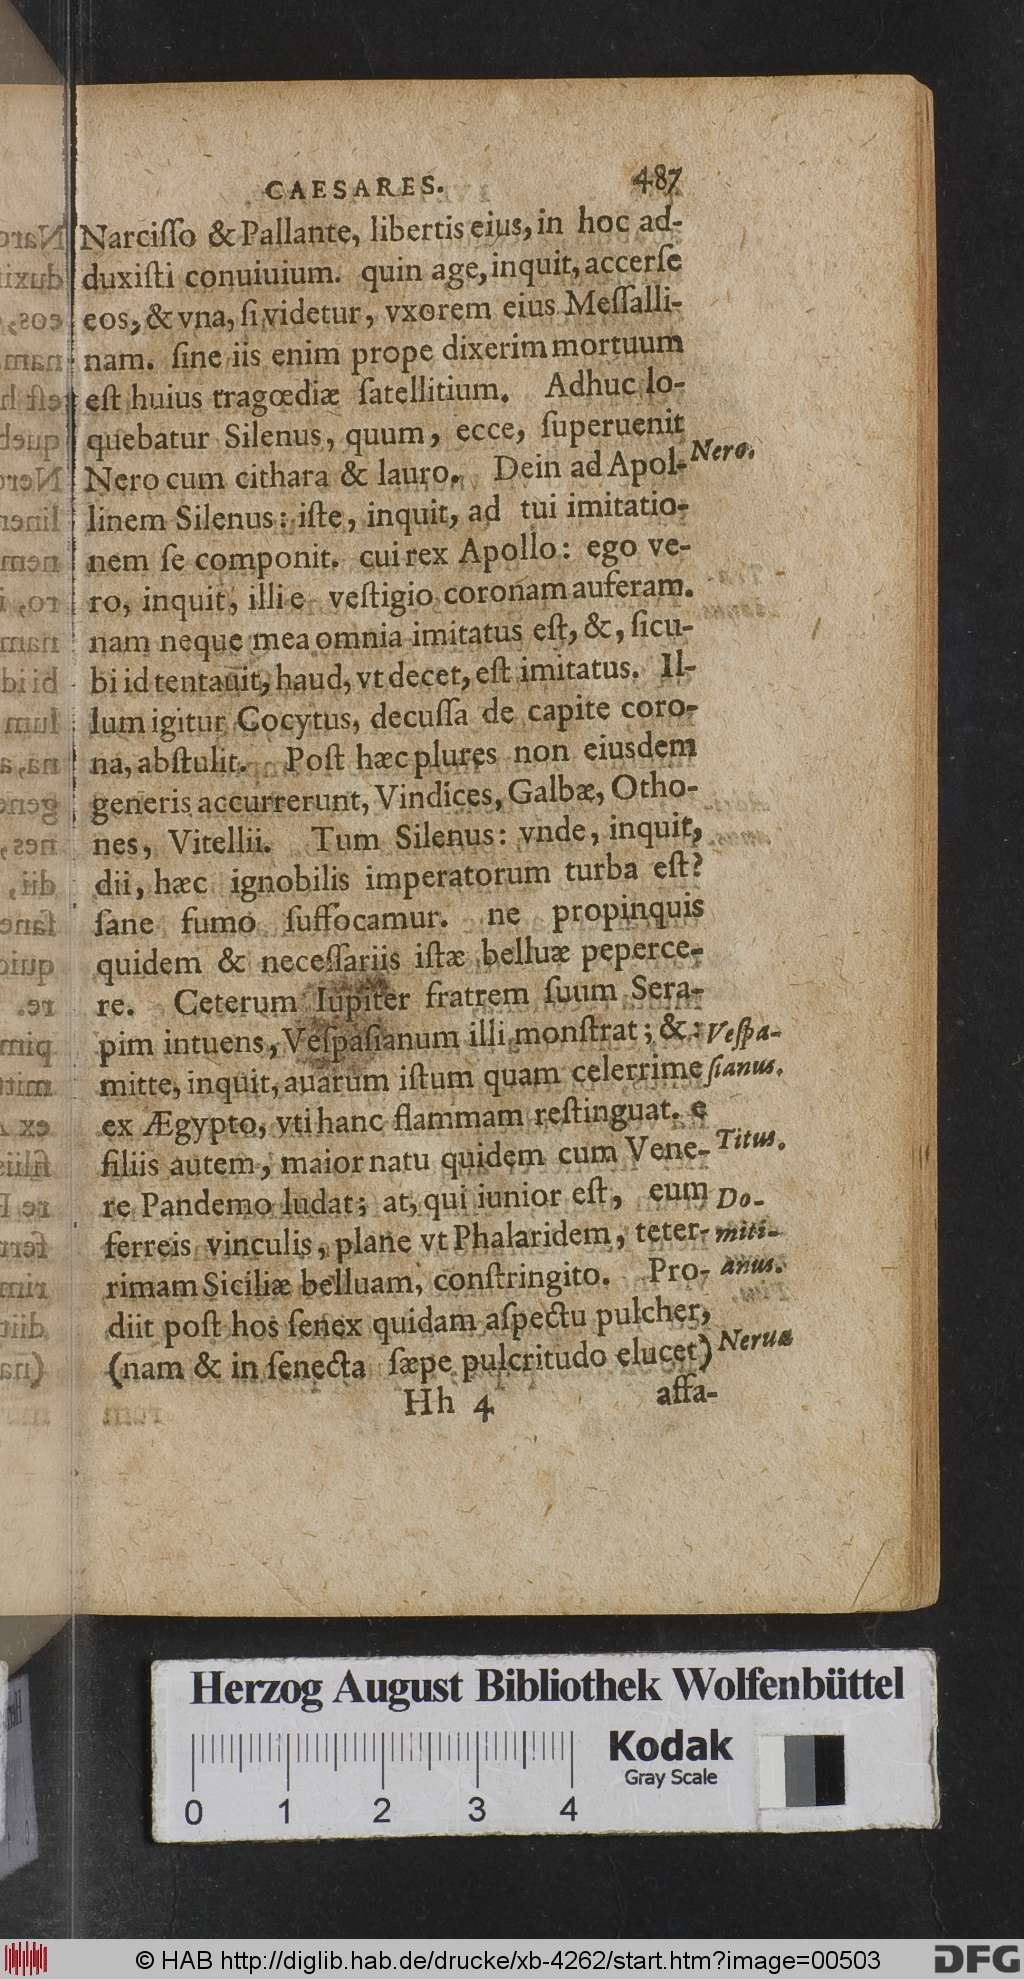 CAESARES. 487
Narciſſo & Pallante, libertis eius, in hoc ad-
duxiſti conuiuium. quin age, inquit, accerſe
eos, & vna, ſi videtur, vxorem eius Meſſalli-
nam. ſine iis enim prope dixerim mortuum
eſt huius tragœdiæ ſatellitium. Adhuc lo-
quebatur Silenus, quum, ecce, ſuperuenit
Nero cum cithara & lauro. Dein ad Apol- Nero.
linem Silenus: iſte, inquit, ad tui imitatio-
nem ſe componit. cui rex Apollo: ego ve-
ro, inquit, illi e veſtigio coronam auferam.
nam neque mea omnia imitatus eſt, &, ſicu-
bi id tentauit, haud, vt decet, eſt imitatus. Il-
lum igitur Cocytus, decuſſa de capite coro-
na, abſtulit. Poſt hæc plures non eiusdem
generis accurrerunt, Vindices, Galbæ, Otho-
nes, Vitellii. Tum Silenus: vnde, inquit,
dii, hæc ignobilis imperatorum turba eſt?
ſane fumo ſuffocamur. ne propinquis
quidem & neceſſariis iſtæ belluæ peperce-
re. Ceterum Iupiter fratrem ſuum Sera-
pim intuens, Veſpaſianum illi monſtrat; &: Veſpa-
mitte, inquit, auarum iſtum quam celerrime ſianus.
ex Ægypto, vti hanc flammam reſtinguat. e
filiis autem, maior natu quidem cum Vene- Titus.
re Pandemo ludat; at, qui iunior eſt, eum Do-
ferreis vinculis, plane vt Phalaridem, teter- miti-
rimam Siciliæ belluam, conſtringito. Pro- anus.
diit poſt hos ſenex quidam aſpectu pulcher,
(nam & in ſenecta ſæpe pulcritudo elucet) Neruæ
Hh 4 affa-
Herzog August Bibliothek Wolfenbüttel
Kodak
Gray Scale
0 1 2 3 4
© HAB http://diglib.hab.de/drucke/xb-4262/start.htm?image=00503 DFG